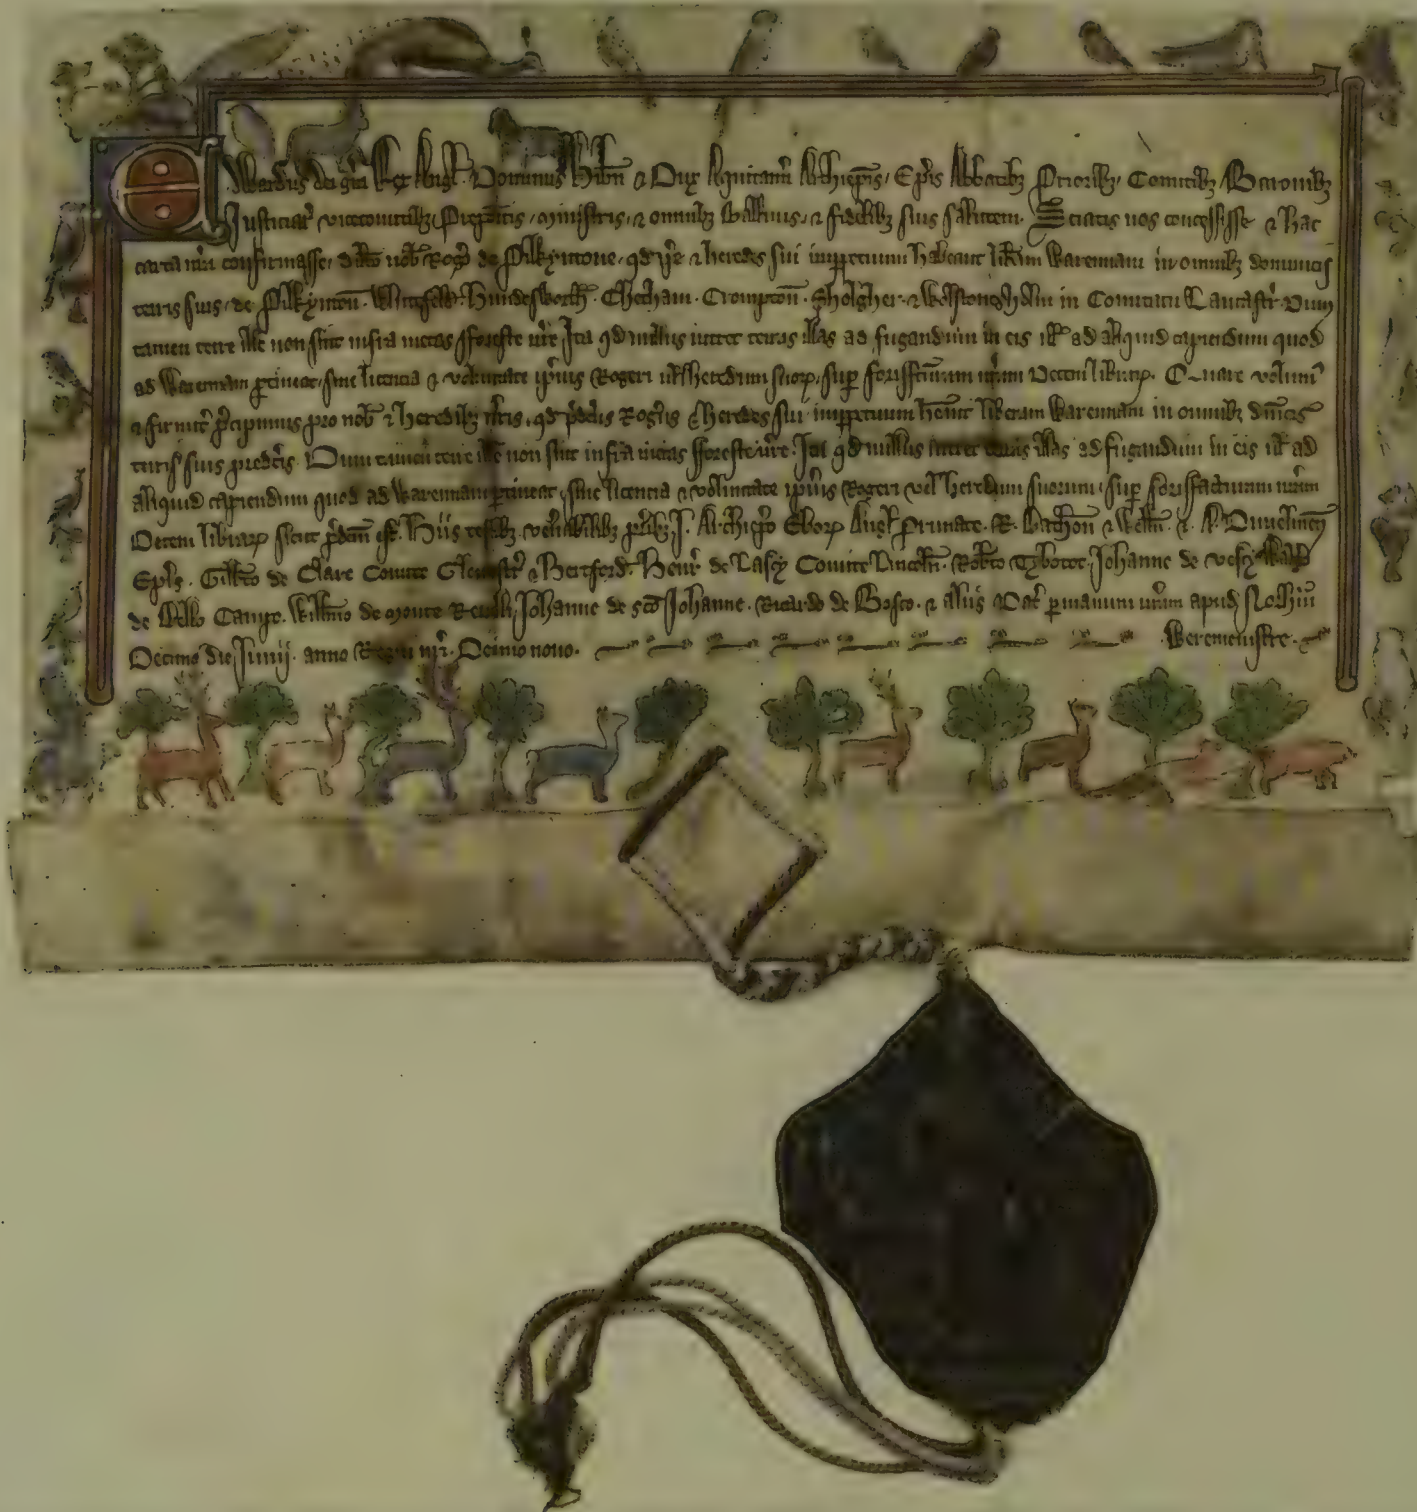 Edwardus dei grā Rex Angl Dominus Hibn̄ ⁊ Dux Aquitann̄ Archiep̄is, Ep̄is Abbatibȝ Prioribȝ, Comitibȝ, Baronibȝ
Justiciar̄ vicecomitibȝ, Prepositis, Ministris, ⁊ omnibȝ Ballivis, ⁊ fidelibȝ suis salutem. Sciatis nos concessisse ⁊ hac
carta nr̄a confirmasse, dil̄to nob̄ Rogo de Pilkyntone, qd ip̄e ⁊ heredes sui imperpetuum habeant lib̄am Warennam in omnibȝ dominicis
terris suis, de Pilkynton̄. Hundesworth̄. Chetham. Crompton̄. in Comitatu Lancastr̄. Dum
tamen terre ille non sint infra metas foreste nr̄e Ita qd nullus intret terras illas ad fugandum in eis ul̄ ad aliquid capiendum quod
ad Warennam p̄tineat, sine licencia ⁊ voluntate ip̄ius Rogeri ul̄ heredum suoꝝ, sup̄ forisf̄cturam nr̄am Decem libraꝝ. Quare volum̄
⁊ firmit̄ p̄cipimus pro nob̄ ⁊ heredibȝ nr̄is, qd p̄dc̄us Rogus ⁊ heredes sui imppetuum heant liberam Warennam in omnibȝ dn̄icis
terris suis predc̄is. Dum tamen terre ille non sint infra metas foreste nr̄e. Ita qd nullus intret terras illas ad fugandum in eis ul̄ ad
aliquid capiendum quod ad Warennam p̄tineat, sine licencia ⁊ voluntate ip̄ius Rogeri vel heredum suorum, sup̄ forisfacturam nr̄am
Decem libraꝝ sicut p̄dc̄m est. Hiis testibȝ ven̄abilibȝ pr̄ibȝ J. Archiep̄o Eboꝝ Angl̄ Primate. R. Bathon̄ ⁊ Welln̄. ⁊ A. Dunelmen̄
Ep̄is. Gilb̄to de Clare Comite Glouestr̄ ⁊ Hertford. Henr̄ de Lascy Comite Lincoln̄. Rob̄to Tybotot, Johanne de Vescy
de Bello Campo. Will̄mo de Monte Revelli, Johanne de sc̄o Johanne. Ricardo de Bosco. ⁊ aliis Dat̄ p̄ manum nr̄am apud
Decimo die Junij. anno Regni nr̄i. Decimo nono.